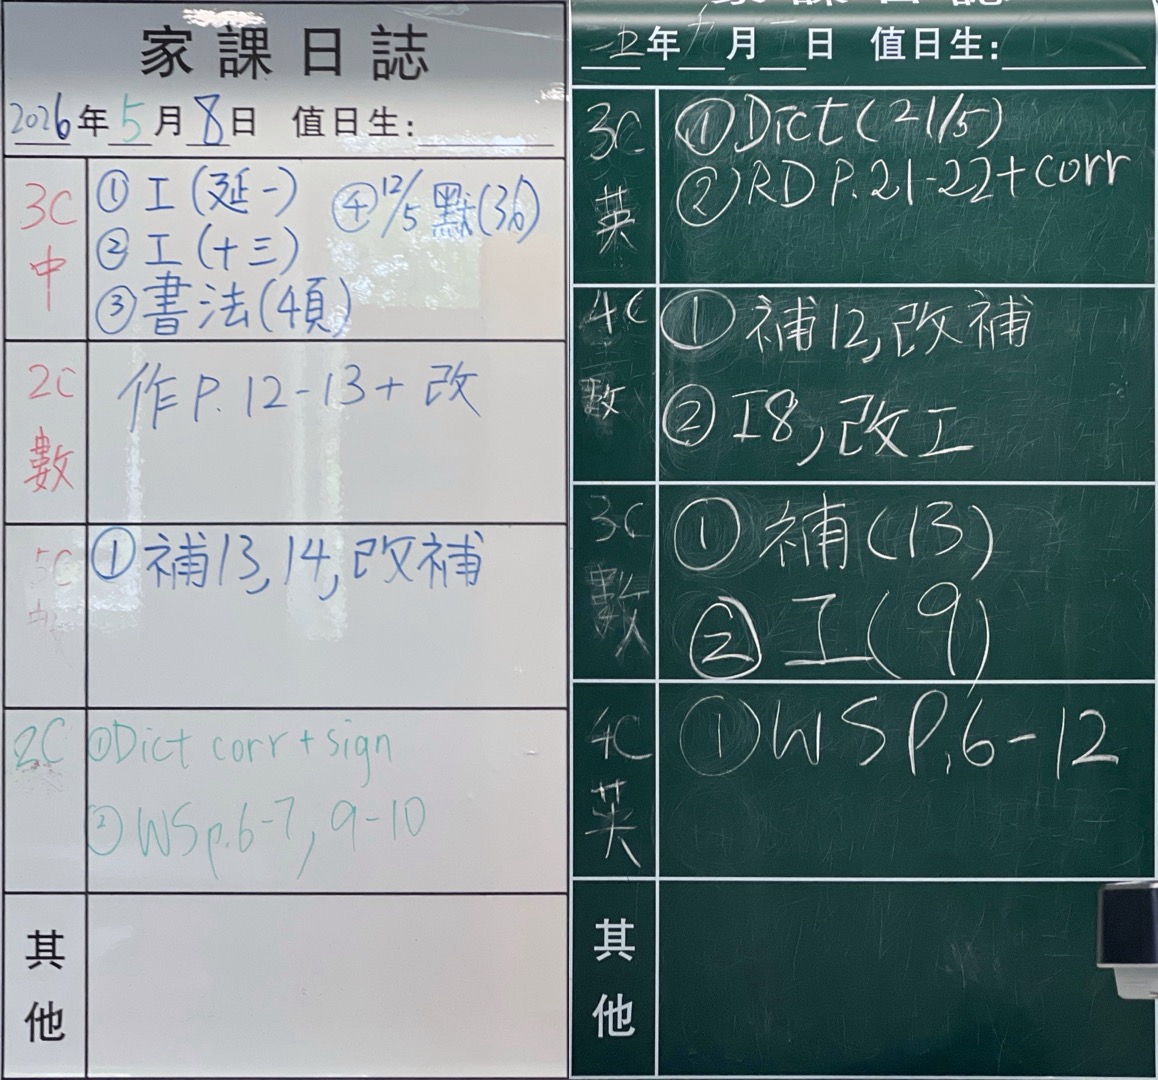 家課日誌
2026年5月8日 值日生:
3C
中
① 工(延一)
② 工(十三)
③ 書法(4頁)
④ 12/5 默(3b)
2C
數
作P.12-13+改
5C
① 補13,14,改補
2C
① Dict corr + sign
② WS p.6-7, 9-10
其他
家課日誌
年 月 日 值日生:
3C
英
① Dict (21/5)
② RD P.21-22+corr
4C
数
① 補12,改補
② 工8,改工
3C
數
① 補(13)
② 工(9)
4C
英
① WS P.6-12
其他